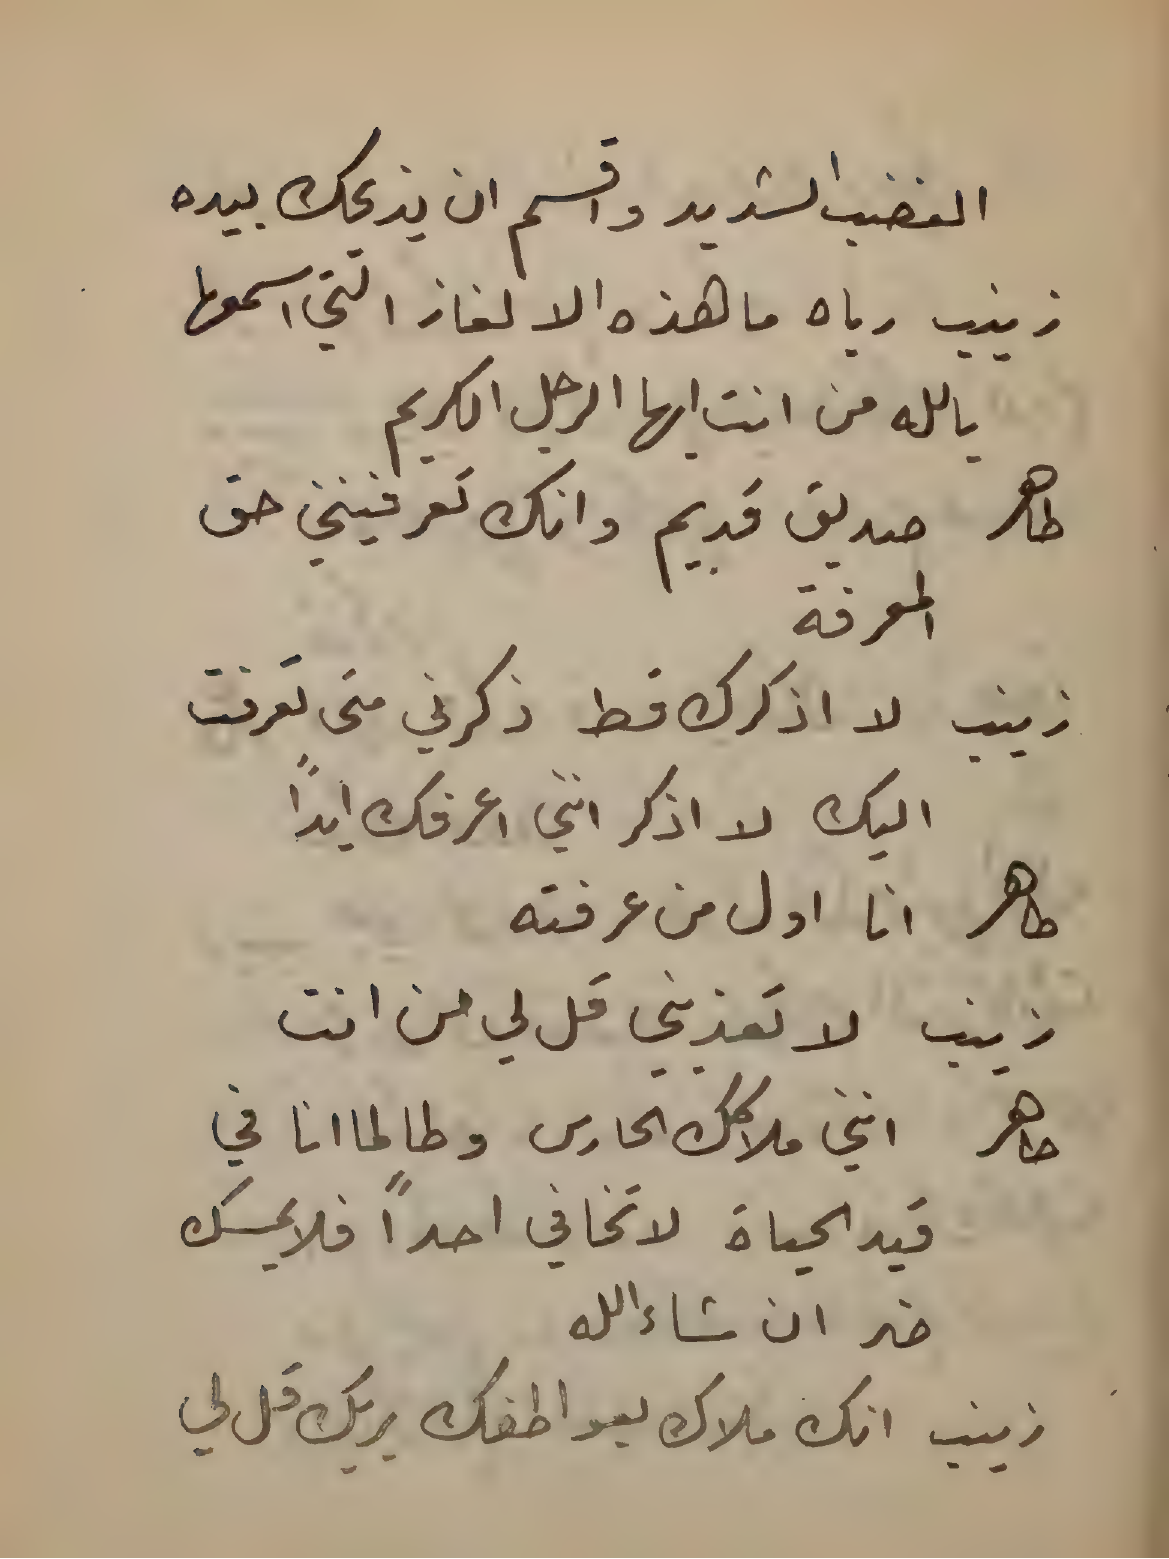 الغضب الشديد واقسم ان يذبحك بيده
زينب رباه ما هذه الالغاز التي اسمعها
يالله من انت ايها الرجل الكريم
طاهر صديق قديم وانك تعرفينني حق
المعرفة
زينب لا اذكرك قط ذكرني متى تعرفت
اليك لا اذكر انني اعرفك ابداً
طاهر انا اول من عرفته
زينب لا تعذبيني قل لي من انت
طاهر انني ملاكك الحارس وطالما انا في
قيد الحياة لا تخافي احداً فلا يمسك
ضر ان شاء الله
زينب انك ملاك بعواطفك بربك قل لي